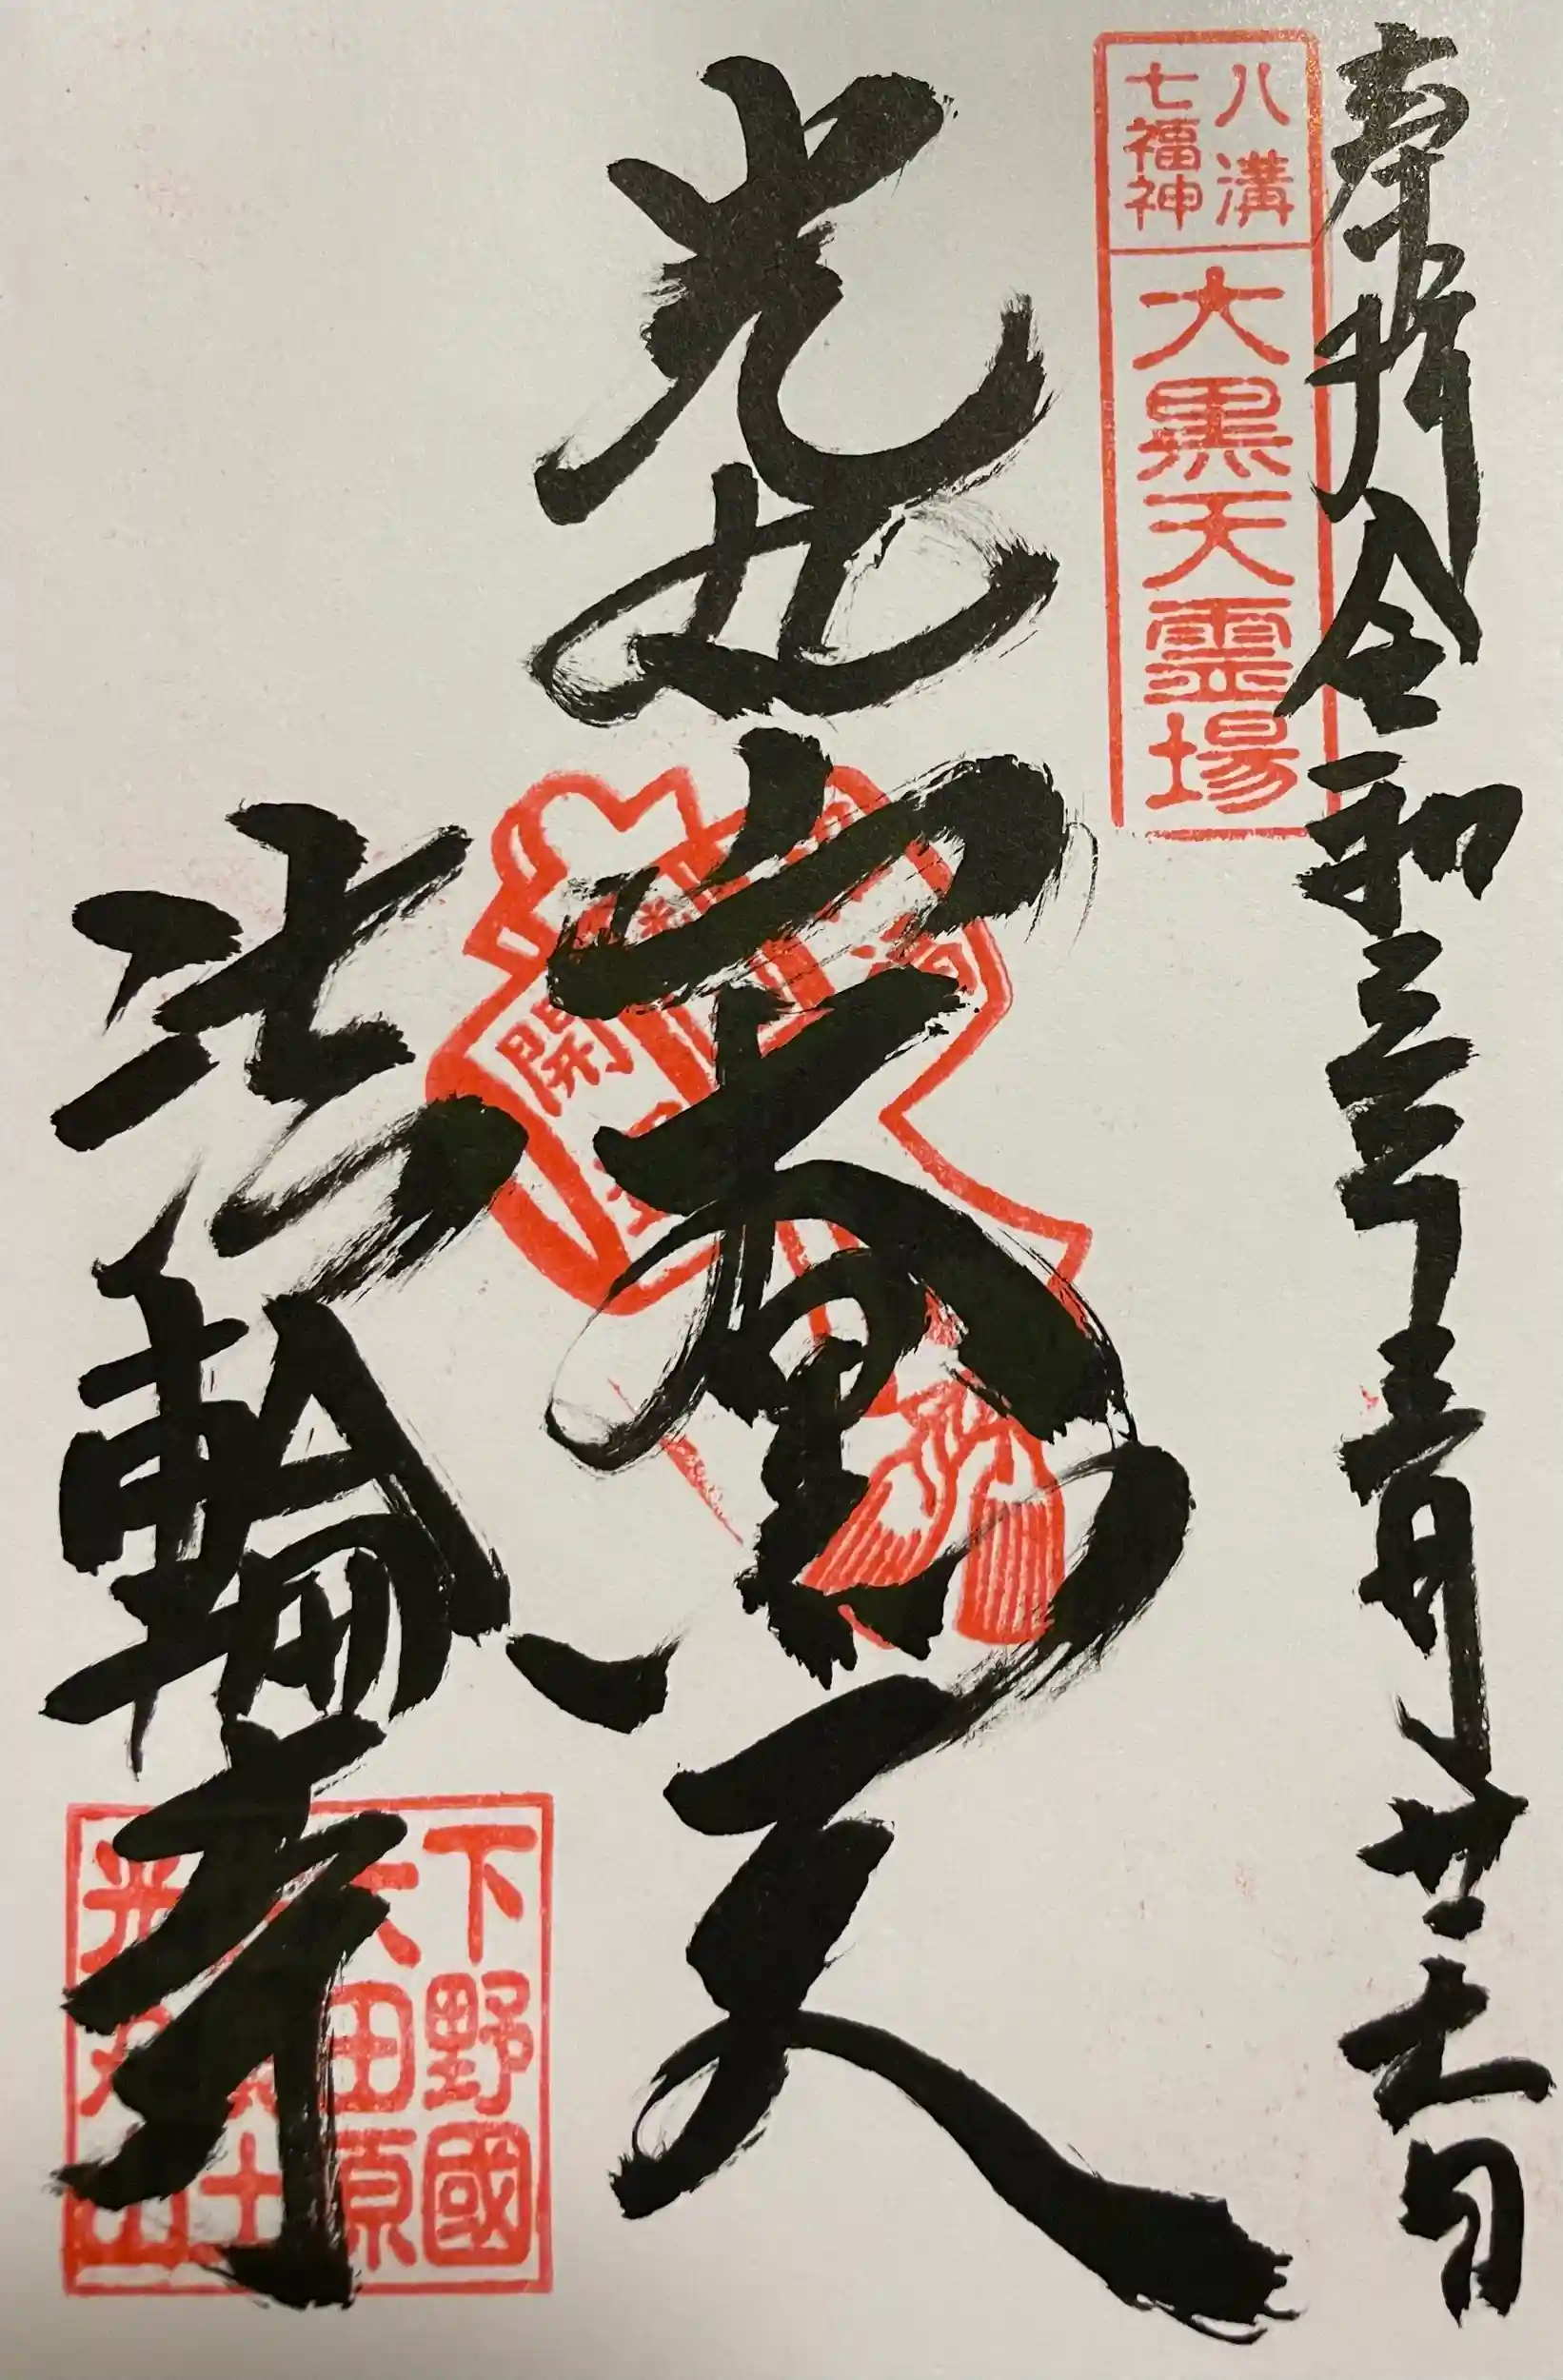 奉拝 令和三年三月廿七日
八溝
七福神
大黒天霊場
光丸山大黒天
開
法輪寺
下野國
大田原
光丸山